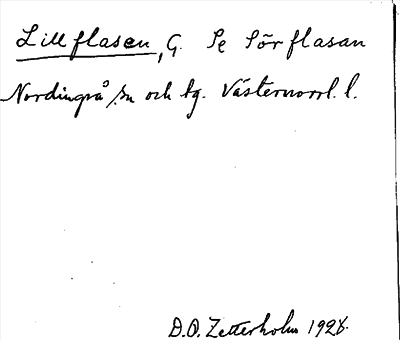 Lillflasen, G. Se Sörflasan
Nordingrå sn och tg. Västernorrl. l.
D.O. Zetterholm 1928.